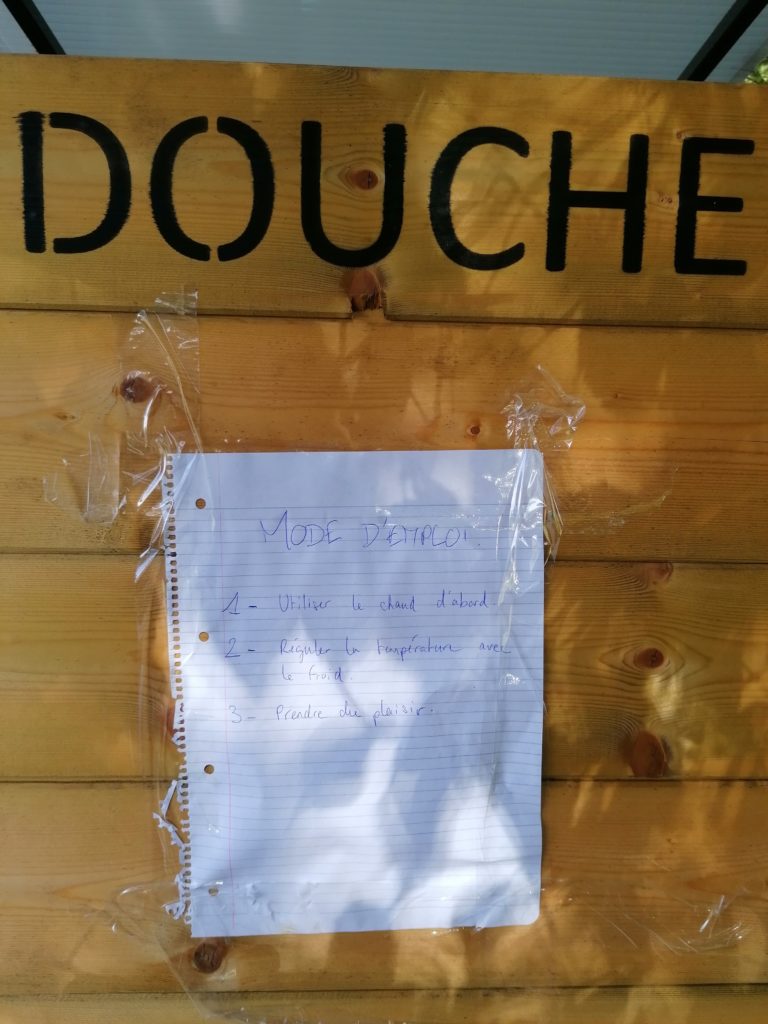 DOUCHE
MODE D'EMPLOI.
1 - Utiliser le chaud d'abord.
2 - Réguler la température avec
le froid.
3 - Prendre du plaisir.